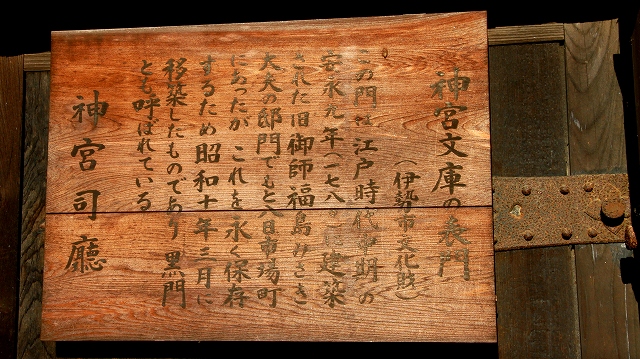 神宮文庫の表門
（伊勢市文化財）
この門は江戸時代中期の
安永九年（一七八〇）建築
された旧御師福島みさき
大夫の邸門でもと八日市場町
にあったが これを永く保存
するため昭和十年三月に
移築したものであり 黒門
とも呼ばれている
神宮司廳